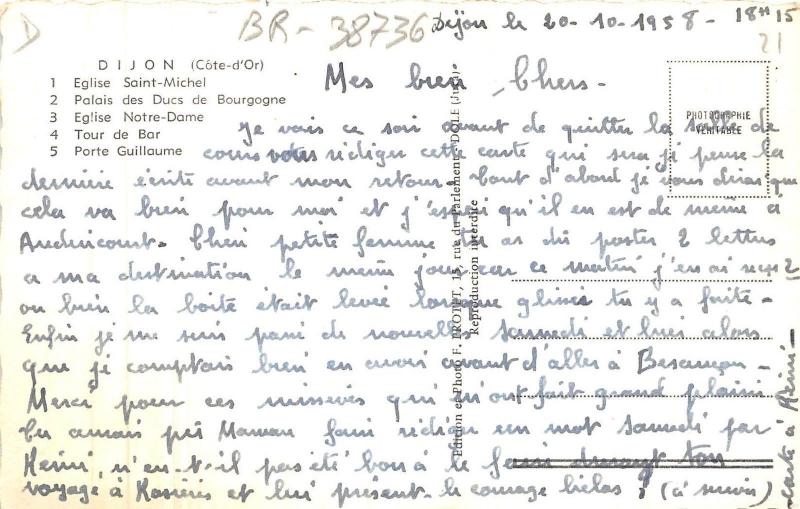 BR-38736 Dijon le 20-10-1958- 18H15
21
D
DIJON (Côte-d'Or)
1 Eglise Saint-Michel
2 Palais des Ducs de Bourgogne
3 Eglise Notre-Dame
4 Tour de Bar
5 Porte Guillaume
PHOTOGRAPHIE
VÉRITABLE
Edition et Photo F. PROTET, 15, rue du Parlement - DOLE (Jura)
Reproduction interdite
Mes bien Chers-
Je vais ce soir avant de quitter la salle de
cours vous rédiger cette carte qui sera je pense la
dernière écrite avant mon retour. Tout d'abord je vous dirai que
cela va bien pour moi et j'espère qu'il en est de même à
Audincourt. Chère petite femme tu as dû poster 2 lettres
à ma destination le même jour car ce matin j'en ai reçu 2
ou bien la boîte était levée lorsque tu y a
Enfin je me suis de nouvelles Samedi et hier alors
que je comptais bien en avoir avant d'aller à Besançon-
Merci pour ces missives qui m'ont fait grand plaisir
Tu aurais pu Maman faire rédiger un mot Samedi par
Rémi, n'en-t-il pas été bon à le faire durant ton
voyage à Rosières et lui présent- le courage hélas ? (à suivre)
carte à Rémi-